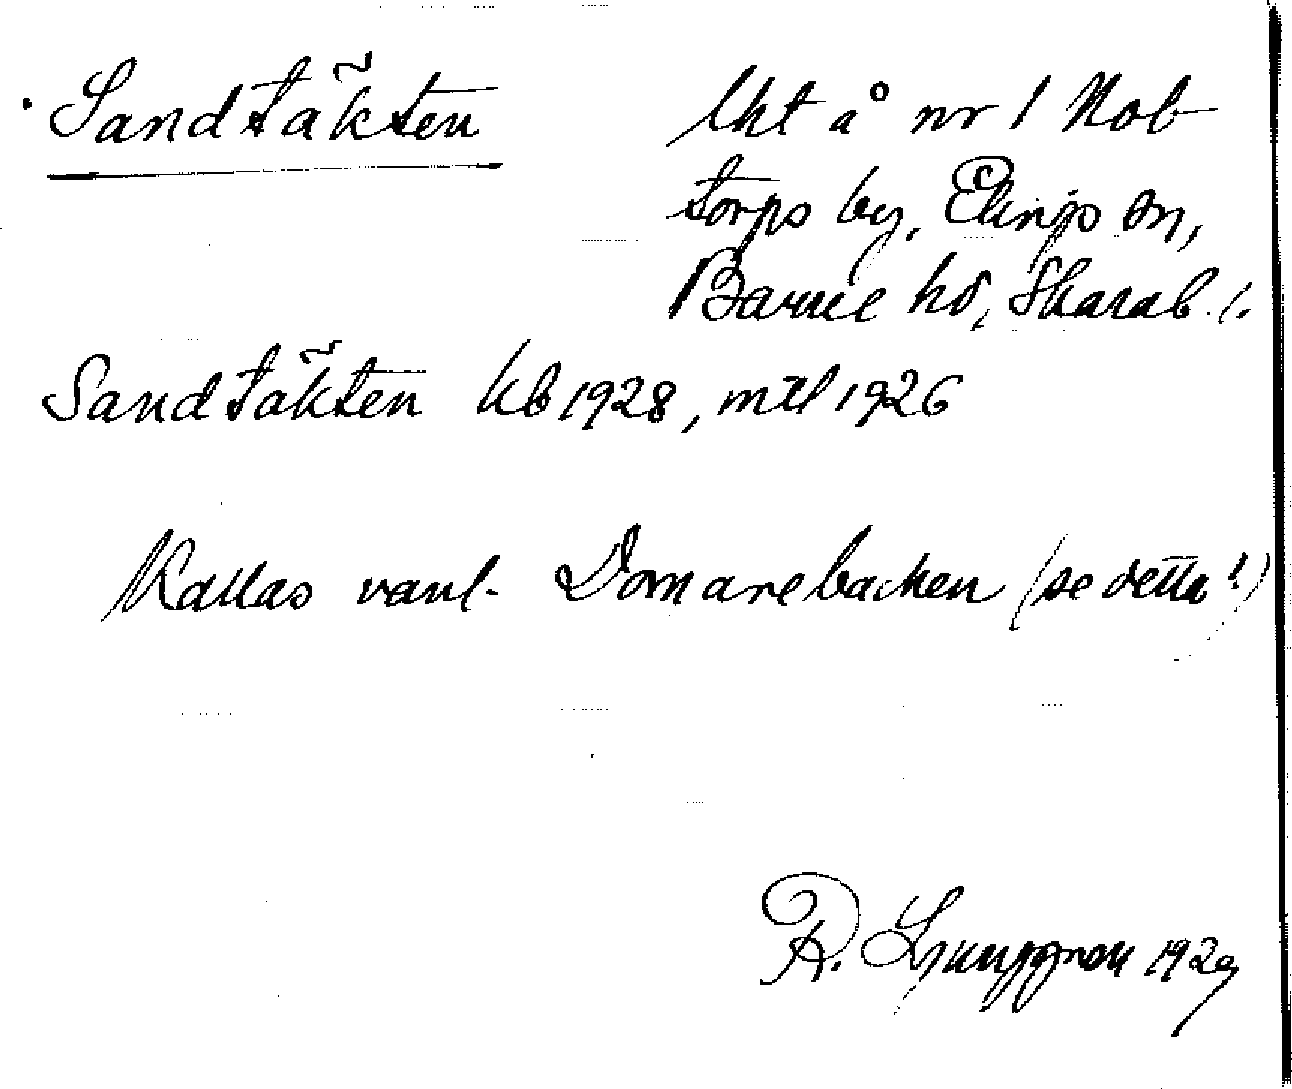 Sandtäkten
lht å nr 1 Nob
torps by, Elings sn,
Barne hd, Skarab. l.
Sandtäkten kb 1928, mtl 1926
Kallas vanl. Domarebacken (se detta!)
R. Ljunggren 1929